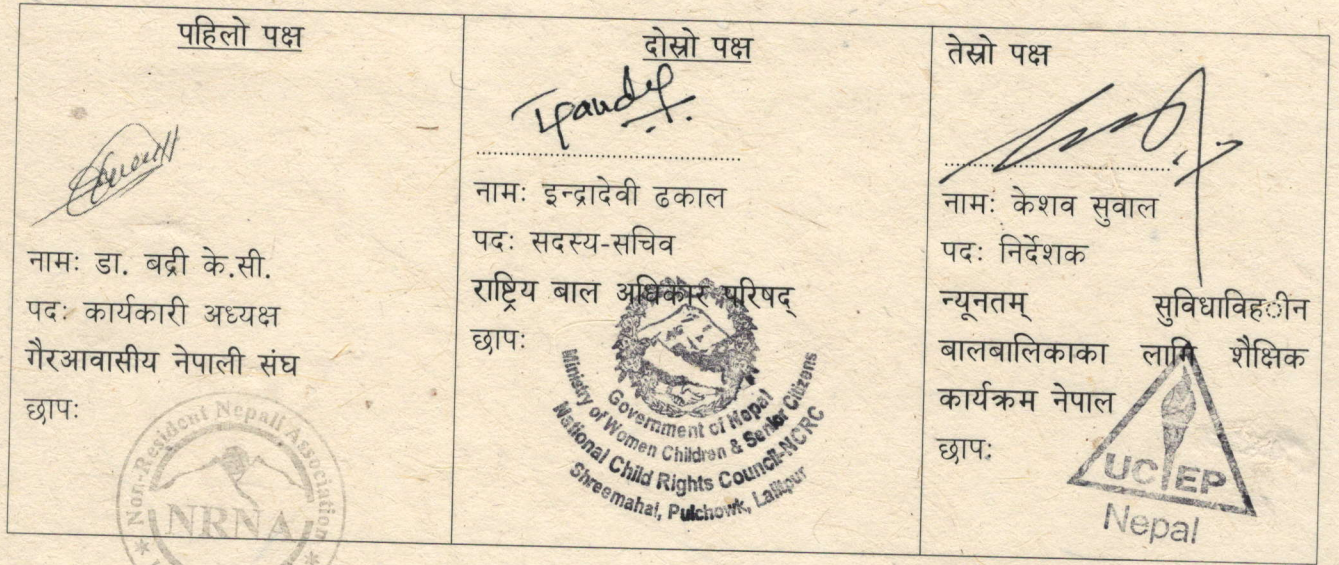 पहिलो पक्ष
नामः डा. बद्री के.सी.
पदः कार्यकारी अध्यक्ष
गैरआवासीय नेपाली संघ
छापः
Non-Resident Nepali Association
NRNA
दोस्रो पक्ष
नामः इन्द्रादेवी ढकाल
पदः सदस्य-सचिव
राष्ट्रिय बाल अधिकार परिषद्
छापः
Government of Nepal
Ministry of Women Children & Senior Citizens
National Child Rights Council-NCRC
Shreemahal, Pulchowk, Lalitpur
तेस्रो पक्ष
नामः केशव सुवाल
पदः निर्देशक
न्यूनतम् सुविधाविह◌ीन
बालबालिकाका लागि शैक्षिक
कार्यक्रम नेपाल
छापः
UCEP
Nepal